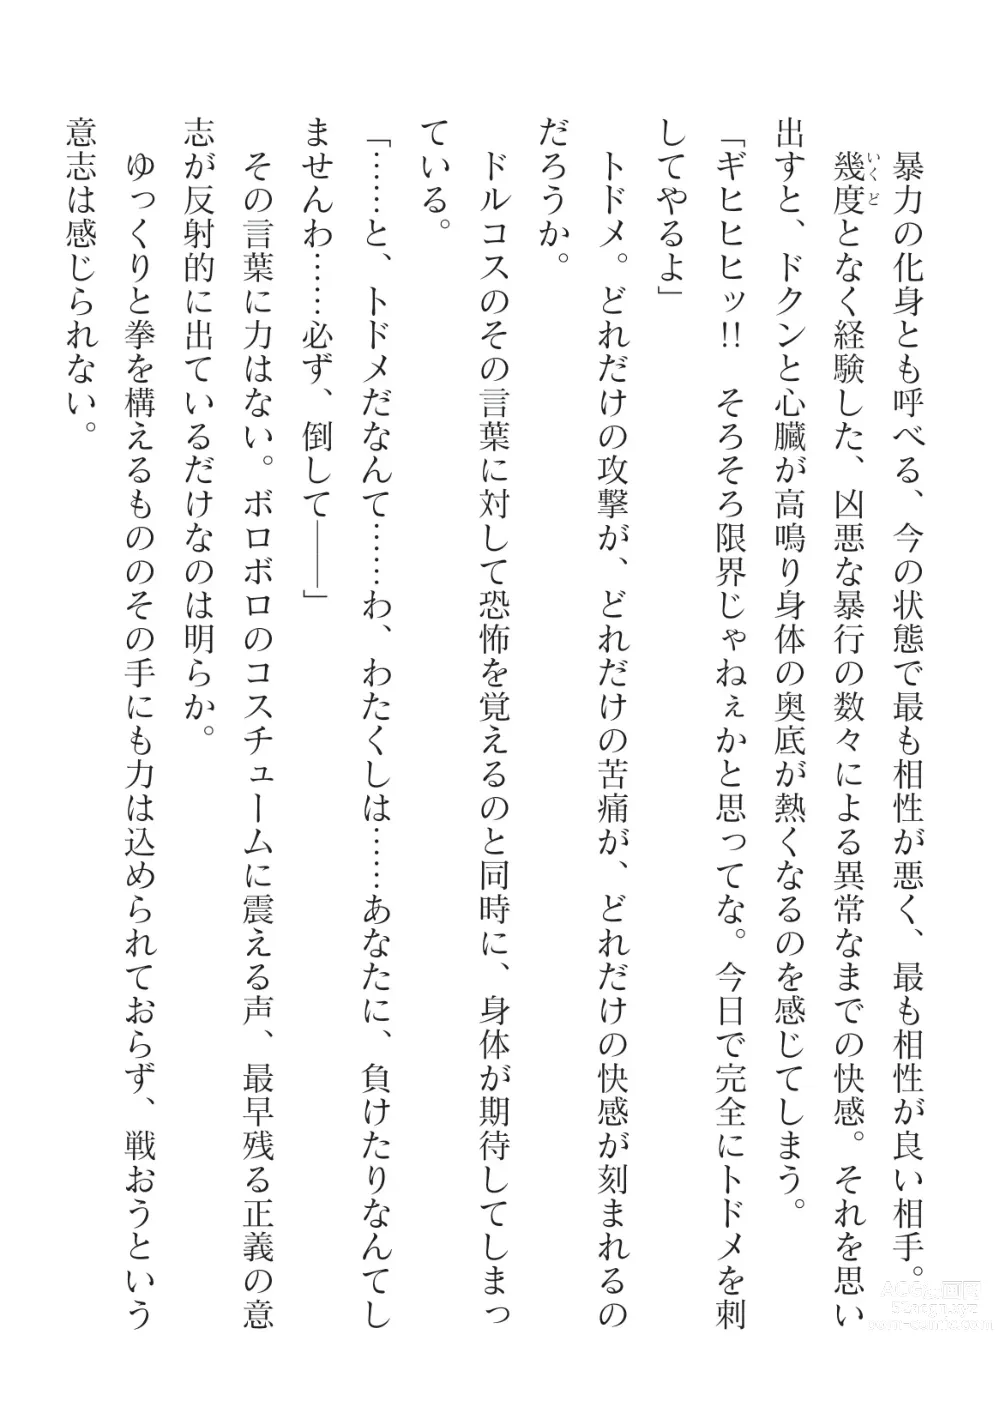 暴力の化身とも呼べる、今の状態で最も相性が悪く、最も相性が良い相手。
幾度となく経験した、凶悪な暴行の数々による異常なまでの快感。それを思い
いくど
出すと、ドクンと心臓が高鳴り身体の奥底が熱くなるのを感じてしまう。
「ギヒヒヒッ!!　そろそろ限界じゃねぇかと思ってな。今日で完全にトドメを刺
してやるよ」
トドメ。どれだけの攻撃が、どれだけの苦痛が、どれだけの快感が刻まれるの
だろうか。
ドルコスのその言葉に対して恐怖を覚えるのと同時に、身体が期待してしまっ
ている。
「……と、トドメだなんて……わ、わたくしは……あなたに、負けたりなんてし
ませんわ……必ず、倒して――」
その言葉に力はない。ボロボロのコスチュームに震える声、最早残る正義の意
志が反射的に出ているだけなのは明らか。
ゆっくりと拳を構えるもののその手にも力は込められておらず、戦おうという
意志は感じられない。